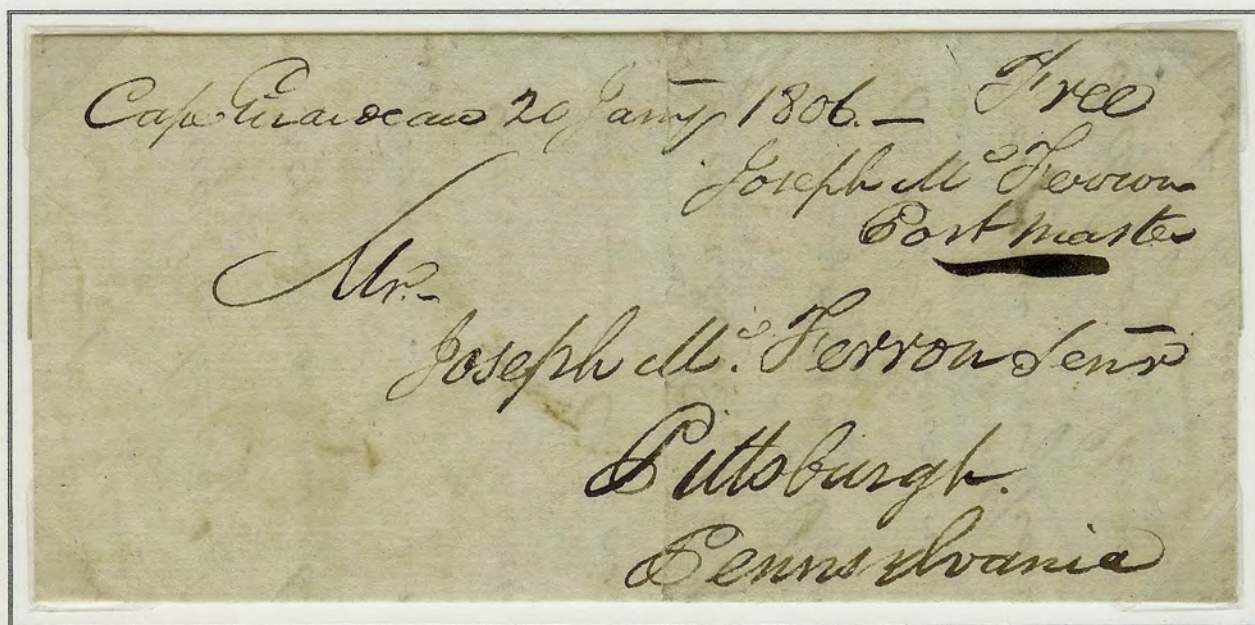 Cape Girardeau 20 Jany 1806. — Free
Joseph Mc Ferron
Post Master
Mr.
Joseph Mc. Ferron Senr
Pittsburgh.
Pennsylvania